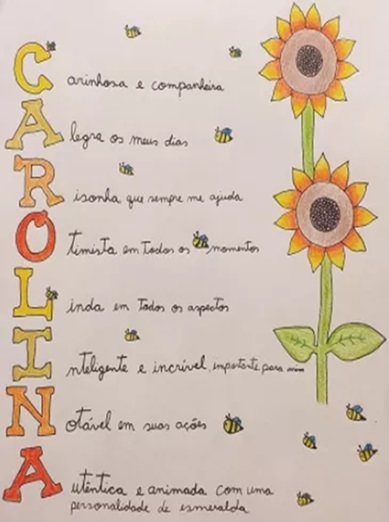 Carinhosa e companheira
Alegra os meus dias
Risonha que sempre me ajuda
Otimista em todos os momentos
Linda em todos os aspectos
Inteligente e incrível, importante para mim
Notável em suas ações
Autêntica e animada com uma
personalidade de esmeralda